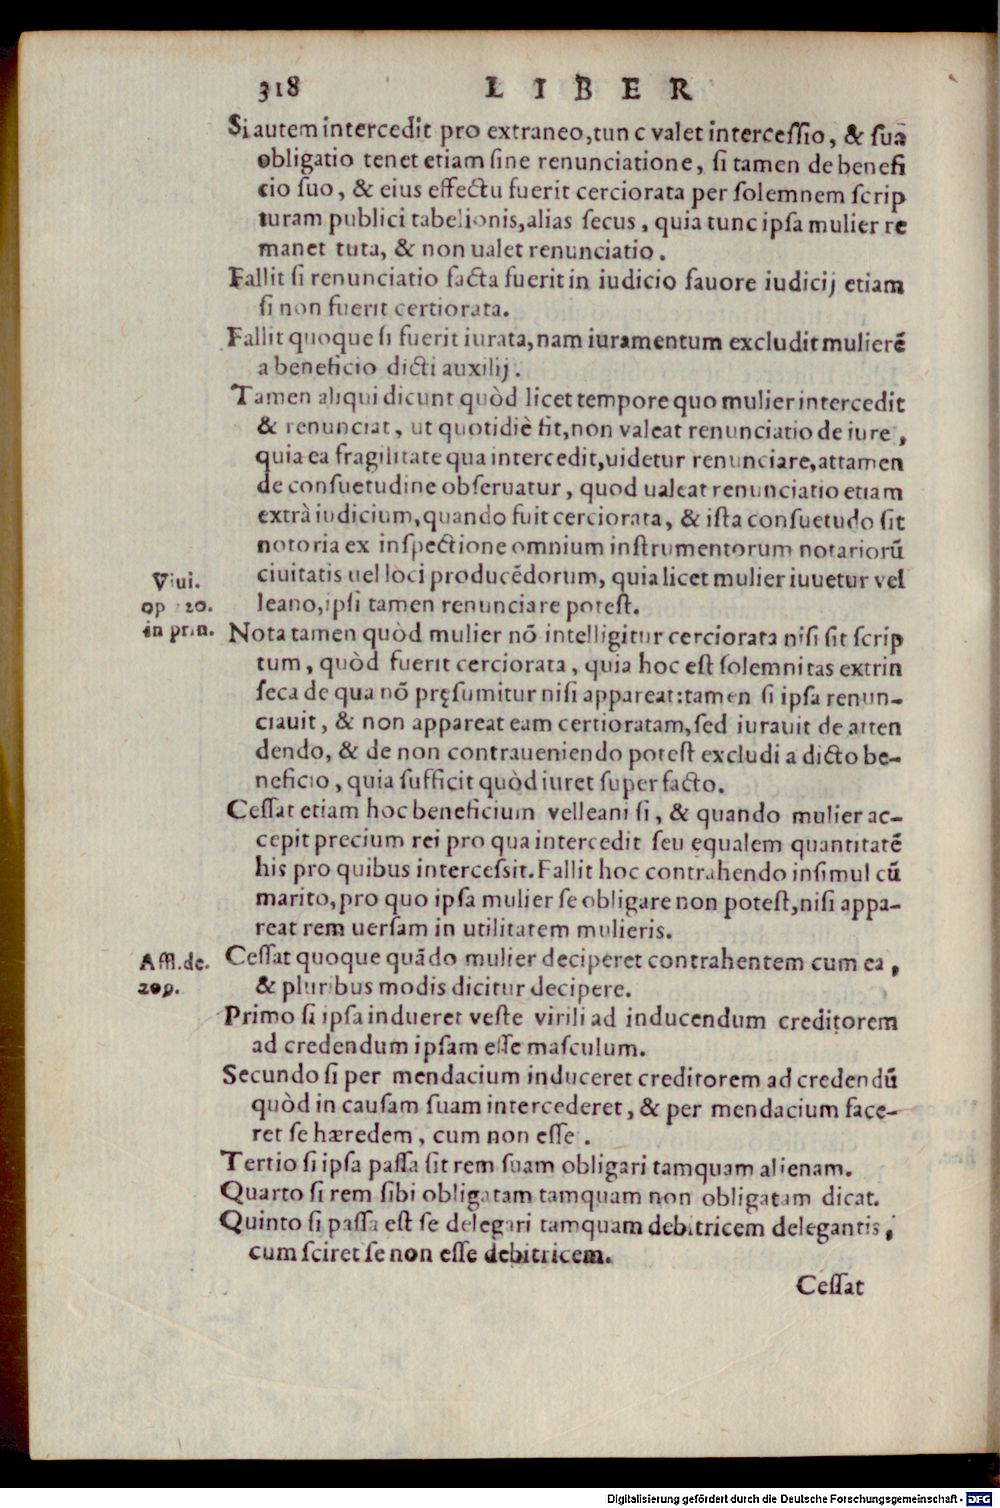 318 LIBER
Si autem intercedit pro extraneo, tunc valet intercessio, & sua
obligatio tenet etiam sine renunciatione, si tamen de benefi
cio suo, & eius effectu fuerit cerciorata per solemnem scrip
turam publici tabelionis, alias secus, quia tunc ipsa mulier re
manet tuta, & non ualet renunciatio.
Fallit si renunciatio facta fuerit in iudicio fauore iudicij etiam
si non fuerit certiorata.
Fallit quoque si fuerit iurata, nam iuramentum excludit mulierẽ
a beneficio dicti auxilij.
Tamen aliqui dicunt quòd licet tempore quo mulier intercedit
& renunciat, ut quotidiè fit, non valeat renunciatio de iure,
quia ea fragilitate qua intercedit, uidetur renunciare, attamen
de consuetudine obseruatur, quod ualeat renunciatio etiam
extrà iudicium, quando fuit cerciorata, & ista consuetudo sit
notoria ex inspectione omnium instrumentorum notariorũ
Viui. ciuitatis uel loci producẽdorum, quia licet mulier iuuetur vel
op 20. leano, ipsi tamen renunciare potest.
in prin. Nota tamen quòd mulier nõ intelligitur cerciorata nisi sit scrip
tum, quòd fuerit cerciorata, quia hoc est solemnitas extrin
seca de qua nõ pręsumitur nisi appareat: tamen si ipsa renun-
ciauit, & non appareat eam certioratam, sed iurauit de atten
dendo, & de non contraueniendo potest excludi a dicto be-
neficio, quia sufficit quòd iuret super facto.
Cessat etiam hoc beneficium velleani si, & quando mulier ac-
cepit precium rei pro qua intercedit seu equalem quantitatẽ
his pro quibus intercessit. Fallit hoc contrahendo insimul cũ
marito, pro quo ipsa mulier se obligare non potest, nisi appa-
reat rem uersam in utilitatem mulieris.
Aff. de. Cessat quoque quãdo mulier deciperet contrahentem cum ea,
209. & pluribus modis dicitur decipere.
Primo si ipsa indueret veste virili ad inducendum creditorem
ad credendum ipsam esse masculum.
Secundo si per mendacium induceret creditorem ad credendũ
quòd in causam suam intercederet, & per mendacium face-
ret se hæredem, cum non esse.
Tertio si ipsa passa sit rem suam obligari tamquam alienam.
Quarto si rem sibi obligatam tamquam non obligatam dicat.
Quinto si passa est se delegari tamquam debitricem delegantis,
cum sciret se non esse debitricem.
Cessat
Digitalisierung gefördert durch die Deutsche Forschungsgemeinschaft - DFG